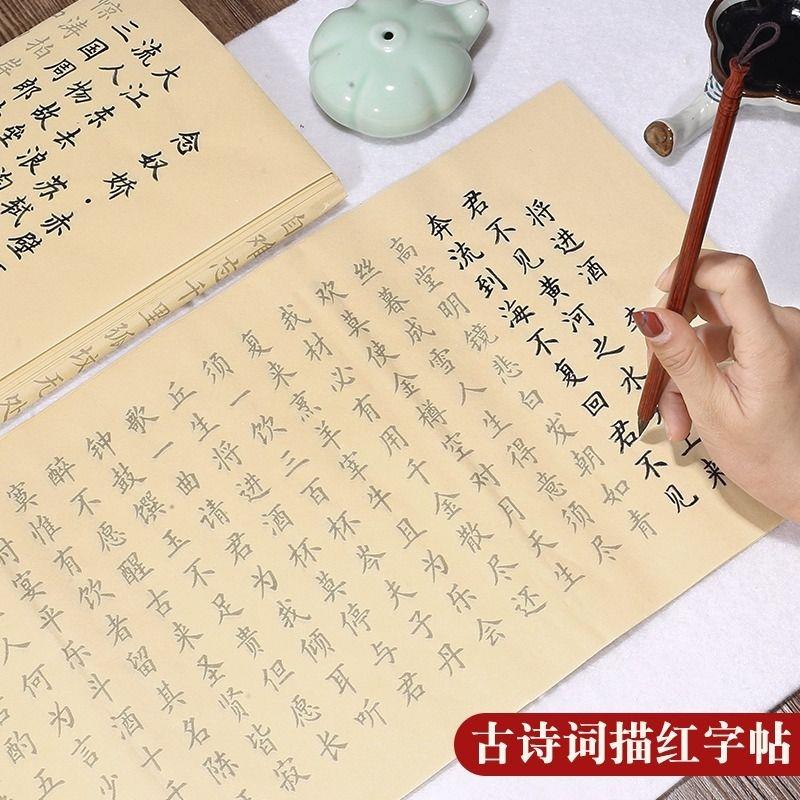 念奴娇·赤壁
苏轼
大江东去浪淘
流人物故垒
三国周郎
惊涛拍岸
自难忘千里孤坟无处
将进酒 李
君不见黄河之水上来
奔流到海不复回君不见
高堂明镜悲白发朝如青
丝暮成雪人生得意须尽
欢莫使金樽空对月天生
我材必有用千金散尽还
复来烹羊宰牛且为乐会
须一饮三百杯岑夫子丹
丘生将进酒杯莫停与君
歌一曲请君为我倾耳听
钟鼓馔玉不足贵但愿长
醉不愿醒古来圣贤皆寂
寞惟有饮者留其名陈
时宴平乐斗酒十千
人何为言少
酌
五
古诗词描红字帖